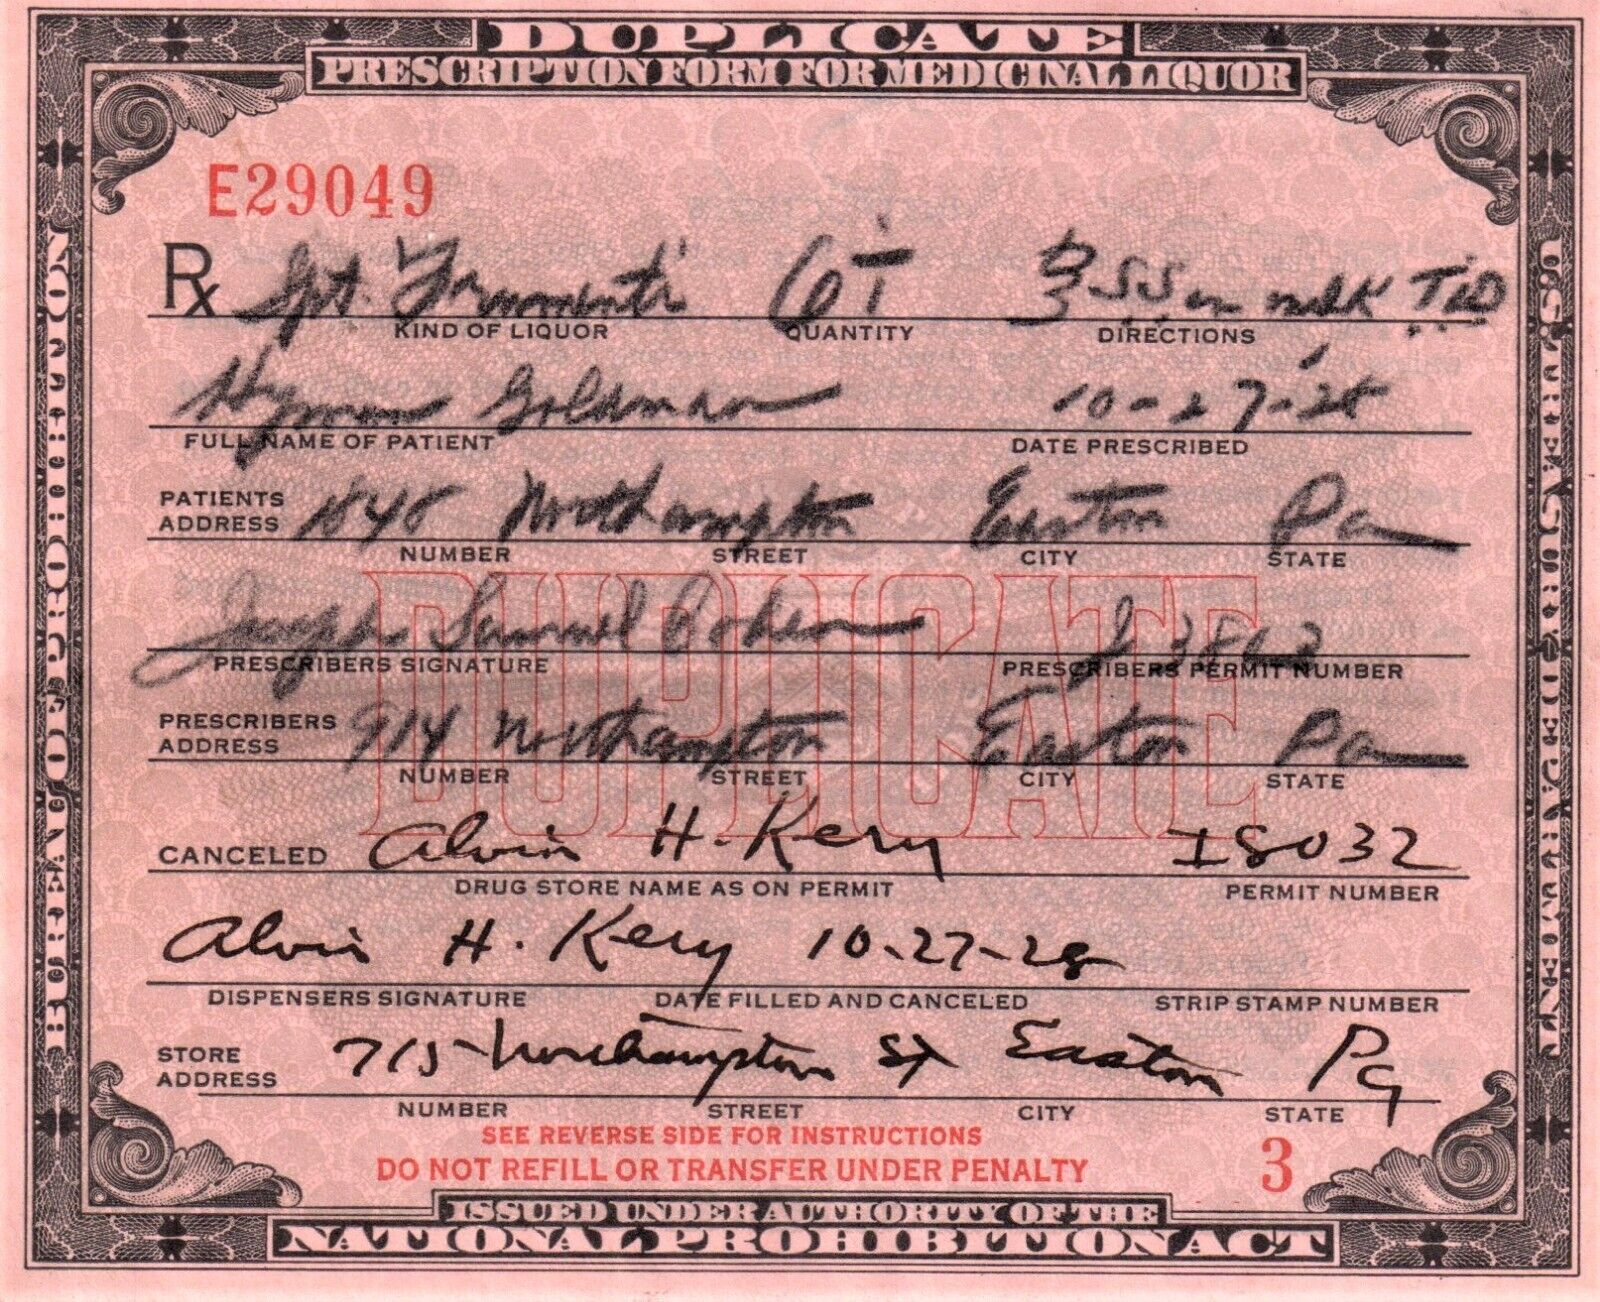 DUPLICATE
PRESCRIPTION FORM FOR MEDICINAL LIQUOR
E29049
Rx Spt. Frumenti Oi ʒ ss in milk TID
KIND OF LIQUOR QUANTITY DIRECTIONS
Hyman Goldman 10-27-28
FULL NAME OF PATIENT DATE PRESCRIBED
PATIENTS ADDRESS 1848 Northampton Easton Pa
NUMBER STREET CITY STATE
DUPLICATE
Joseph Samuel Cohen
PRESCRIBERS SIGNATURE PRESCRIBERS PERMIT NUMBER
PRESCRIBERS ADDRESS 914 Northampton Easton Pa
NUMBER STREET CITY STATE
CANCELED Alvin H. Kery I8032
DRUG STORE NAME AS ON PERMIT PERMIT NUMBER
Alvin H. Kery 10-27-28
DISPENSERS SIGNATURE DATE FILLED AND CANCELED STRIP STAMP NUMBER
STORE ADDRESS 715 Northampton St Easton Pa
NUMBER STREET CITY STATE
SEE REVERSE SIDE FOR INSTRUCTIONS
DO NOT REFILL OR TRANSFER UNDER PENALTY 3
ISSUED UNDER AUTHORITY OF THE
NATIONAL PROHIBITION ACT